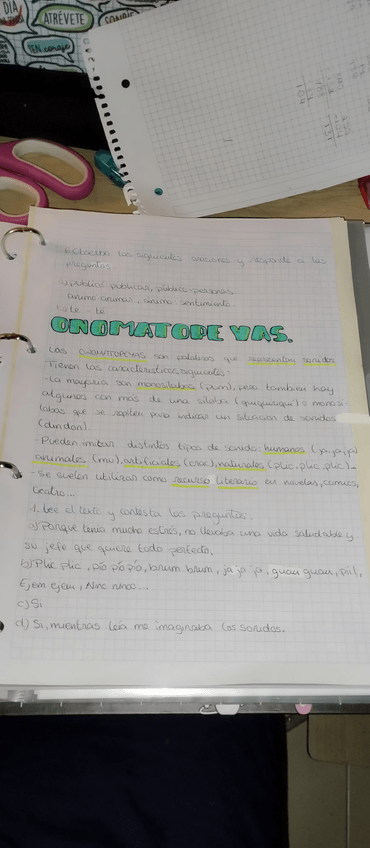 DÍA
ATRÉVETE
SONRÍE
TEN coraje
las siguientes oraciones y responde a las
preguntas.
público publicar, público personas.
animo animar, animo sentimiento.
te
ONOMATOPEYAS.
Las ONOMATOPEYAS son palabras que representan sonidos
-Tienen las características siguientes:
-La mayoría son monosílabos (pum), pero también hay
algunos con más de una sílaba (quiquiriquí) o monosi-
labas que se repiten para indicar un situación de sonidos
(dindon).
-Pueden imitar distintos tipos de sonido: humanos (ja ja ja)
animales (mu), artificiales (crac), naturales (plic, plic, plic)...
-Se suelen utilizar como recurso literario en novelas, comics,
teatro...
1. Lee el texto y contesta las preguntas.
a) Porque tenía mucho estrés, no llevaba una vida saludable y
su jefe que quiere todo perfecto.
b) Plic plic, pío pío pío, brum brum, ja ja ja, guau guau, pii,
Ejem ejem, Ninc ninc...
c) Si
d) Si, mientras leía me imaginaba los sonidos.